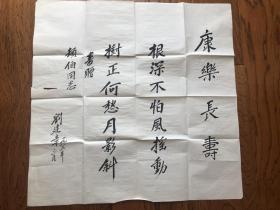 康樂長壽
根深不怕風搖動
樹正何愁月影斜
書贈
穎伯同志
劉建章